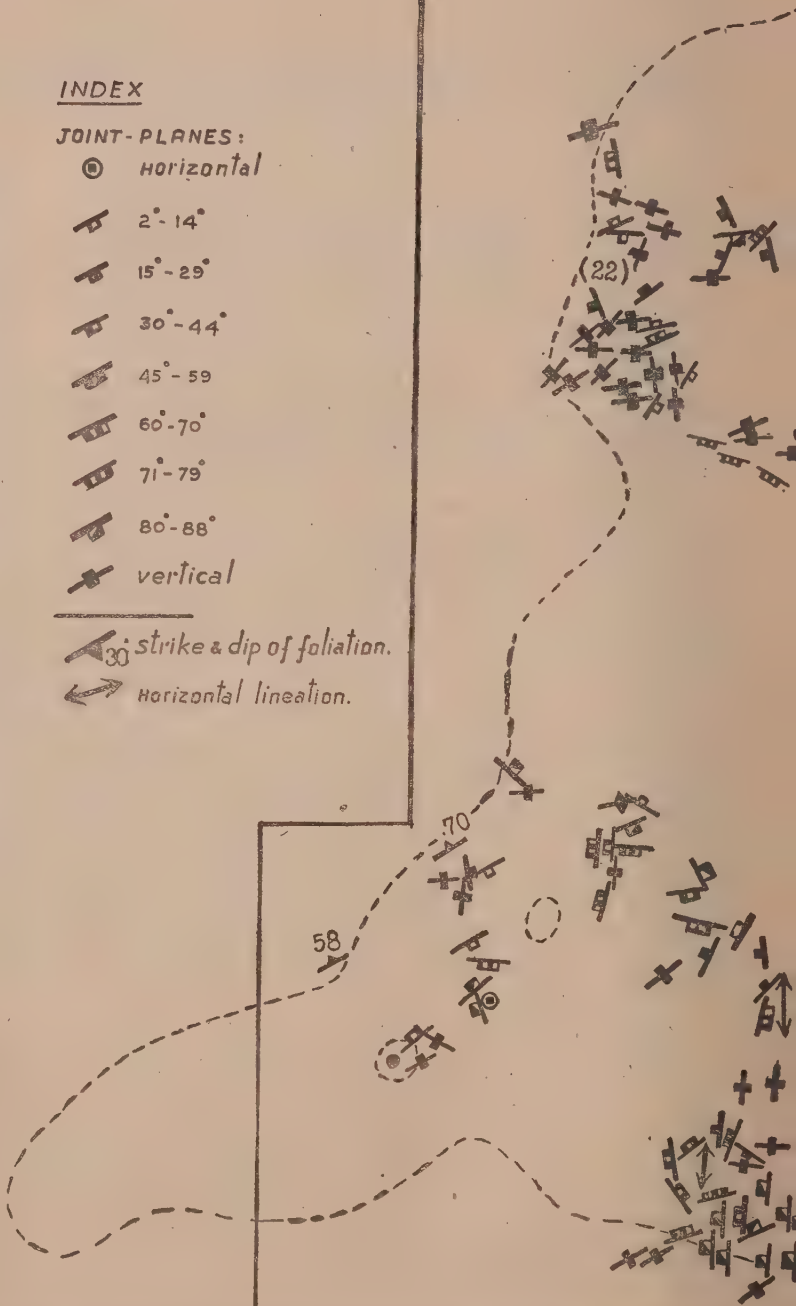 INDEX
JOINT-PLANES:
Horizontal
2°-14°
15°-29°
30°-44°
45°-59
60°-70°
71°-79°
80°-88°
vertical
30° strike & dip of foliation.
Horizontal lineation.
(22)
70
58